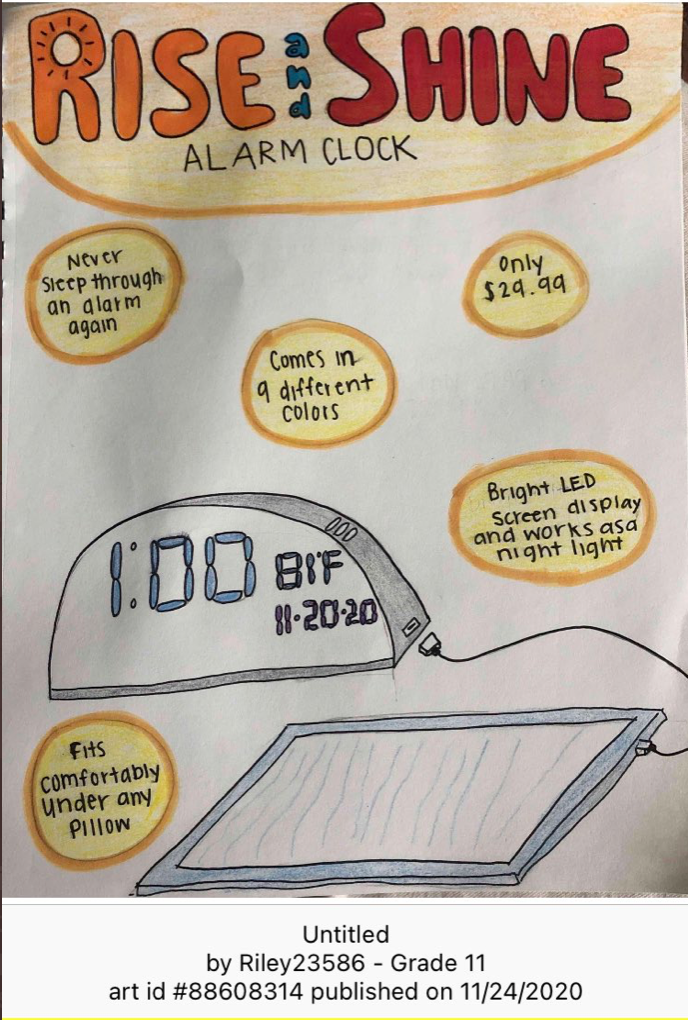 RISE and SHINE
ALARM CLOCK
Never
sleep through
an alarm
again
Only
$29.99
Comes in
9 different
colors
Bright LED
screen display
and works as a
night light
1:00
81°F
11·20·20
Fits
comfortably
under any
pillow
Untitled
by Riley23586 - Grade 11
art id #88608314 published on 11/24/2020